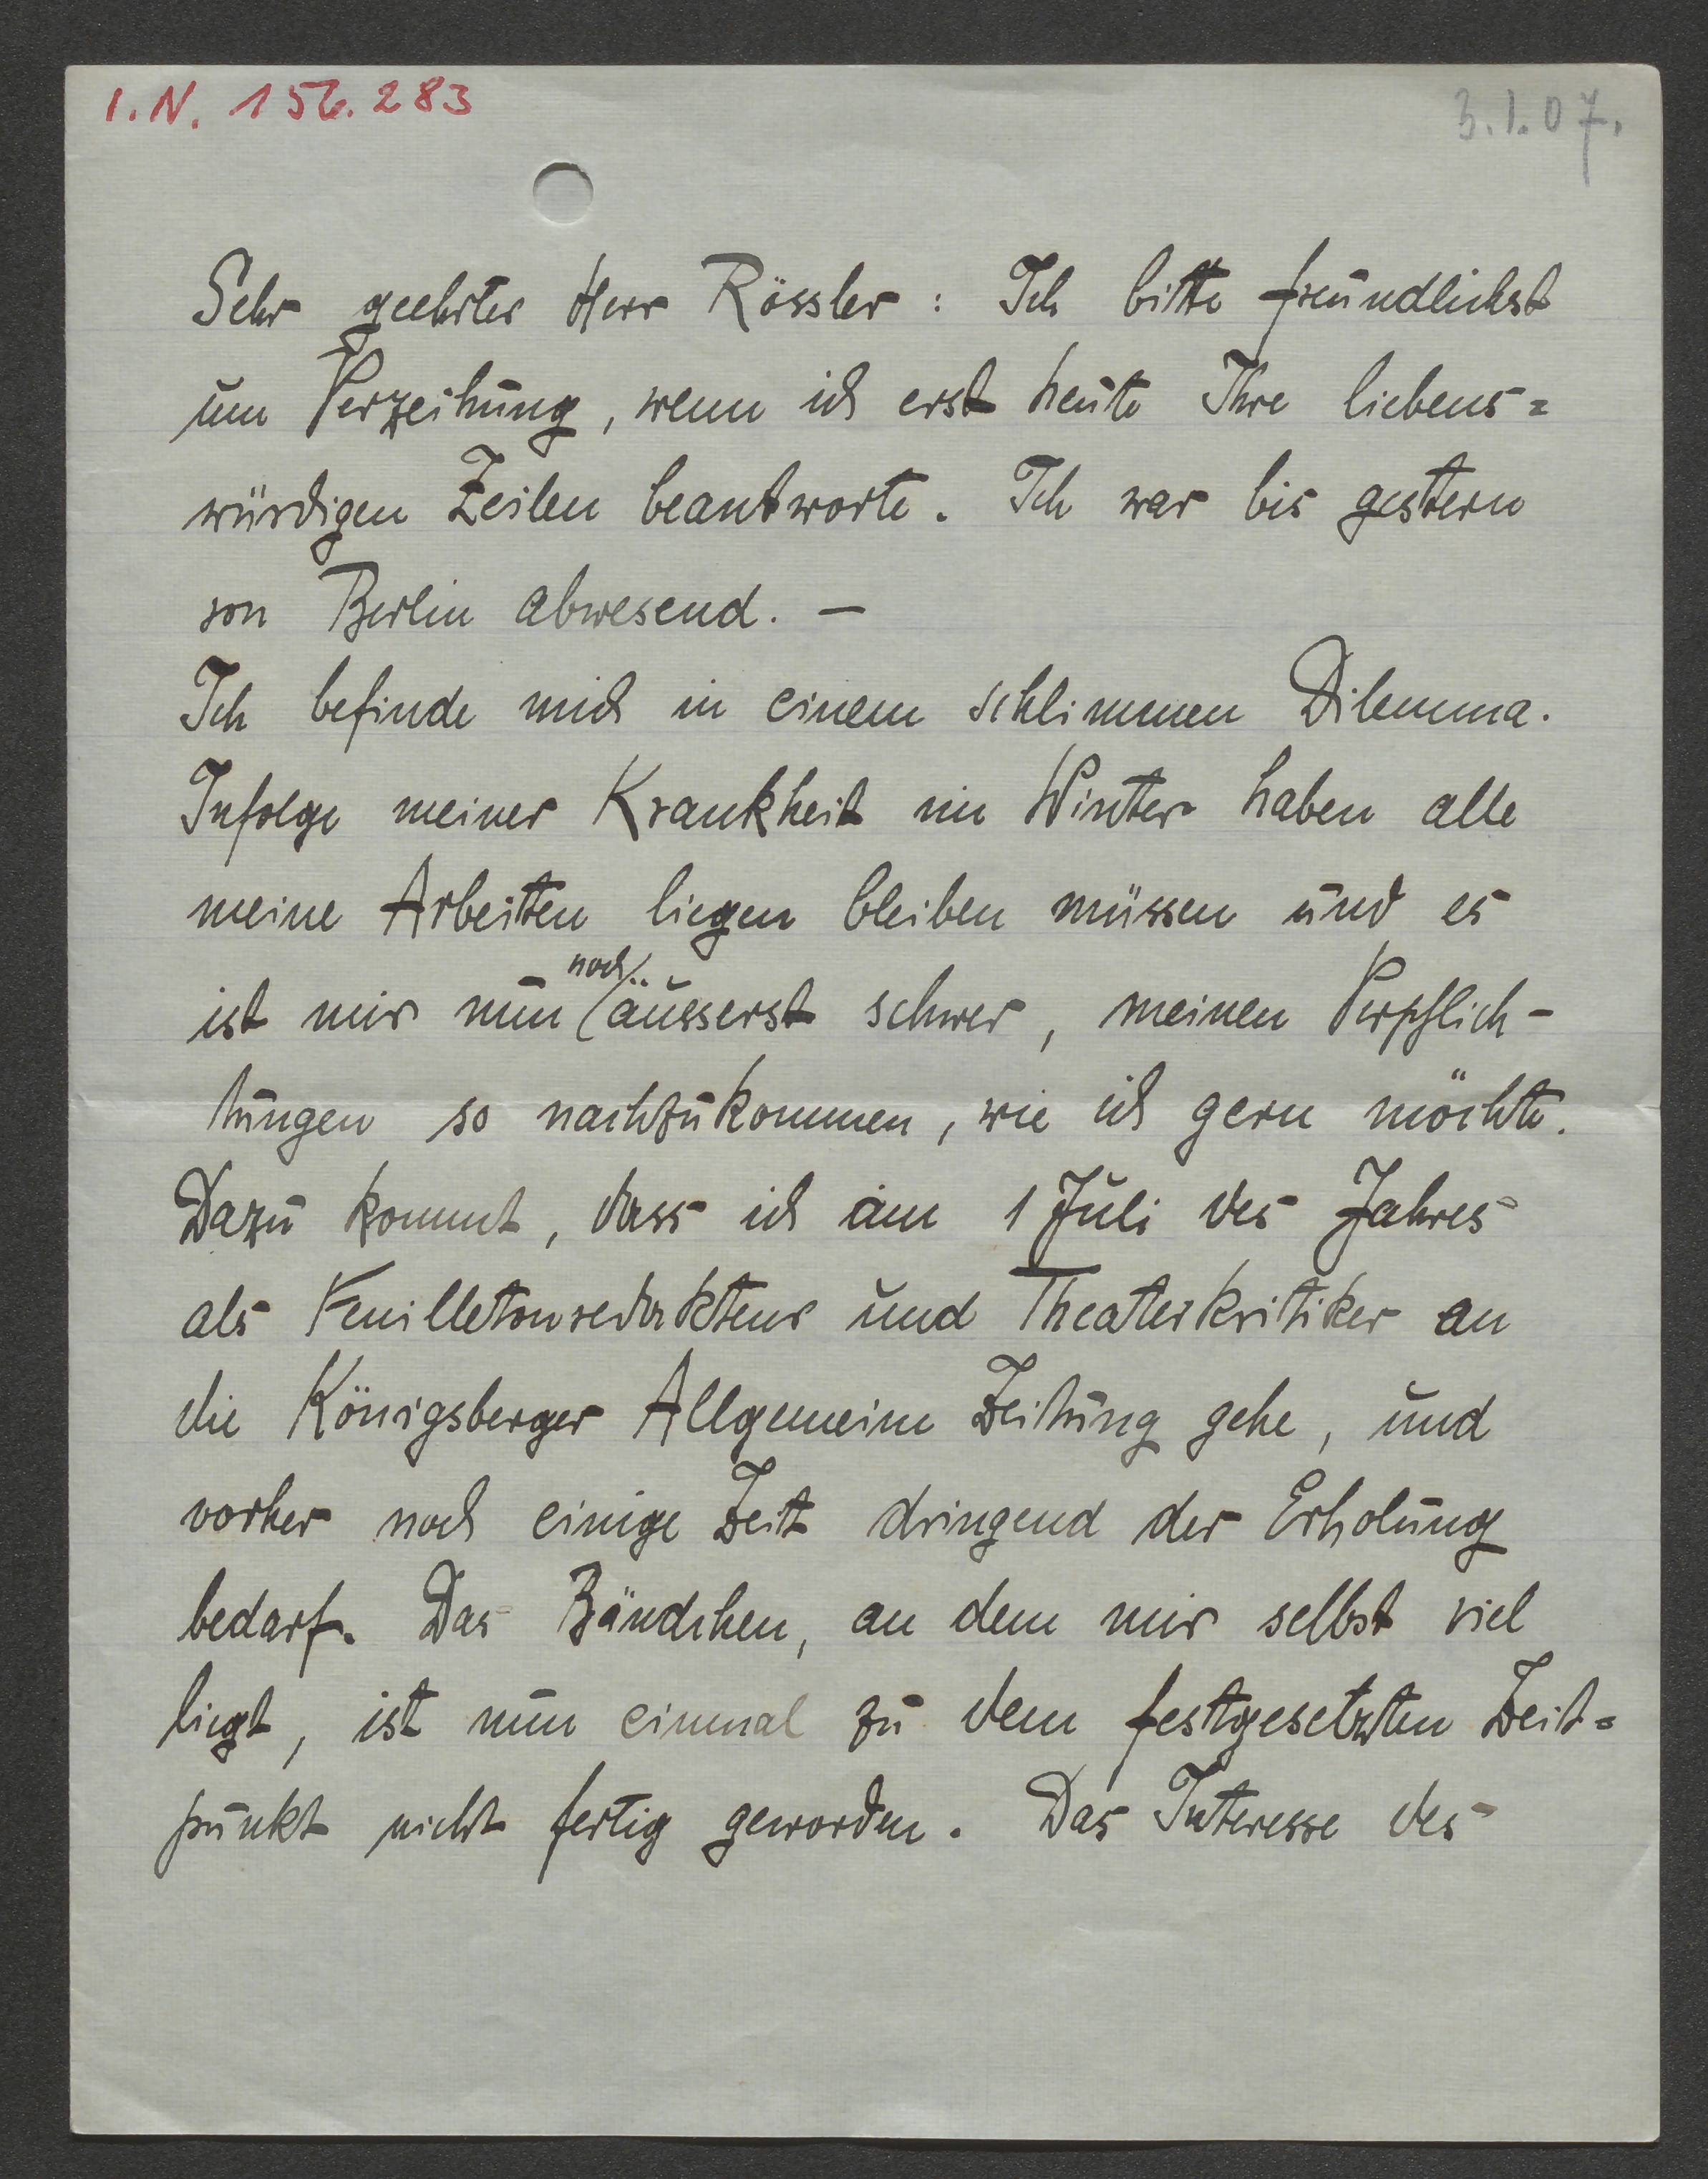 I.N. 156.283
3.1.07.
Sehr geehrter Herr Rössler: Ich bitte freundlichst
um Verzeihung, wenn ich erst heute Ihre liebens=
würdigen Zeilen beantworte. Ich war bis gestern
von Berlin abwesend. —
Ich befinde mich in einem schlimmen Dilemma.
Infolge meiner Krankheit im Winter haben alle
meine Arbeiten liegen bleiben müssen und es
noch
ist mir nun äusserst schwer, meinen Verpflich-
tungen so nachzukommen, wie ich gern möchte.
Dazu kommt, dass ich am 1 Juli des Jahres
als Feuilletonredakteur und Theaterkritiker an
die Königsberger Allgemeine Zeitung gehe, und
vorher noch einige Zeit dringend der Erholung
bedarf. Das Bändchen, an dem mir selbst viel
liegt, ist nun einmal zu dem festgesetzten Zeit=
punkt nicht fertig geworden. Das Interesse des